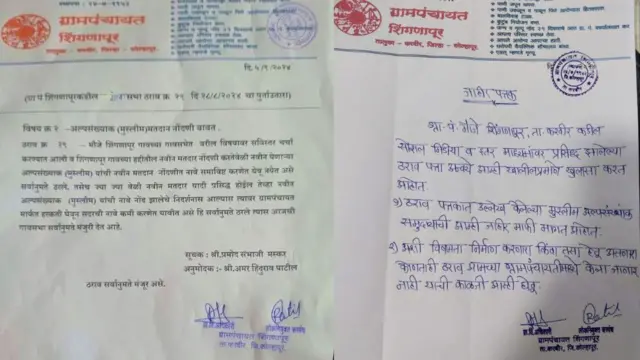 स्थापना - २७-७-१९५२
ग्रामपंचायत
शिंगणापूर
तालुका - करवीर, जिल्हा - कोल्हापूर.
दि. ५/९/२०२४
सभा ठराव क्र २१ दि २८/८/२०२४ चा पुर्नाउतारा)
विषय क्र २ - अल्पसंख्याक (मुस्लीम)मतदान नोंदणी बाबत.
ठराव क्र २१ - मौजे शिंगणापूर गावच्या गावसभेत वरील विषयावर सविस्तर चर्चा
करण्यात आली व शिंगणापूर गावच्या हद्दीतील नवीन मतदार नोंदणी करतेवेळी नवीन येणाऱ्या
अल्पसंख्याक (मुस्लीम) यांची नवीन मतदार नोंदणीत नावे समाविष्ट करणेत येवू नयेत असे
सर्वानुमते ठरले. तसेच ज्या ज्या वेळी नवीन मतदार यादी प्रसिद्ध होईल तेव्हा नवीन
अल्पसंख्याक (मुस्लीम) यांची नावे नोंद झालेचे निदर्शनास आल्यास त्यावर ग्रामपंचायत
मार्फत हरकती घेवून सदरची नावे कमी करणेत यावीत असे हि सर्वानुमते ठरले त्यास आजची
गावसभा सर्वानुमते मंजुरी देत आहे.
सूचक : श्री.प्रमोद संभाजी मस्कर
अनुमोदक:- श्री.अमर हिंदुराव पाटील
ठराव सर्वानुमते मंजूर असे.
ग्रामपंचायत शिंगणापूर
ता.करवीर, जि.कोल्हापूर.
ग्रामपंचायत
शिंगणापूर
तालुका - करवीर, जिल्हा - कोल्हापूर.
जाहीर पत्रक
ग्रा. पं. मौजे शिंगणापूर, ता. करवीर कडील
सोशल मिडिया व इतर माध्यमांवर प्रसिद्ध झालेल्या
ठराव आम्ही खालीलप्रमाणे खुलासा करत
आहोत.
१) ठराव पत्रकात उल्लेख केलेल्या मुस्लीम अल्पसंख्यांक
समुदायाची आम्ही जाहिर माफी मागत आहोत.
२) अशी विषमता निर्माण करणारा किंवा तसा हेतू असणारा
कोणताही ठराव आमच्या ग्रामपंचायतीमध्ये केला जाणार
नाही याची काळजी आम्ही घेवू.
ग्रामपंचायत शिंगणापूर
ता.करवीर, जि.कोल्हापूर.